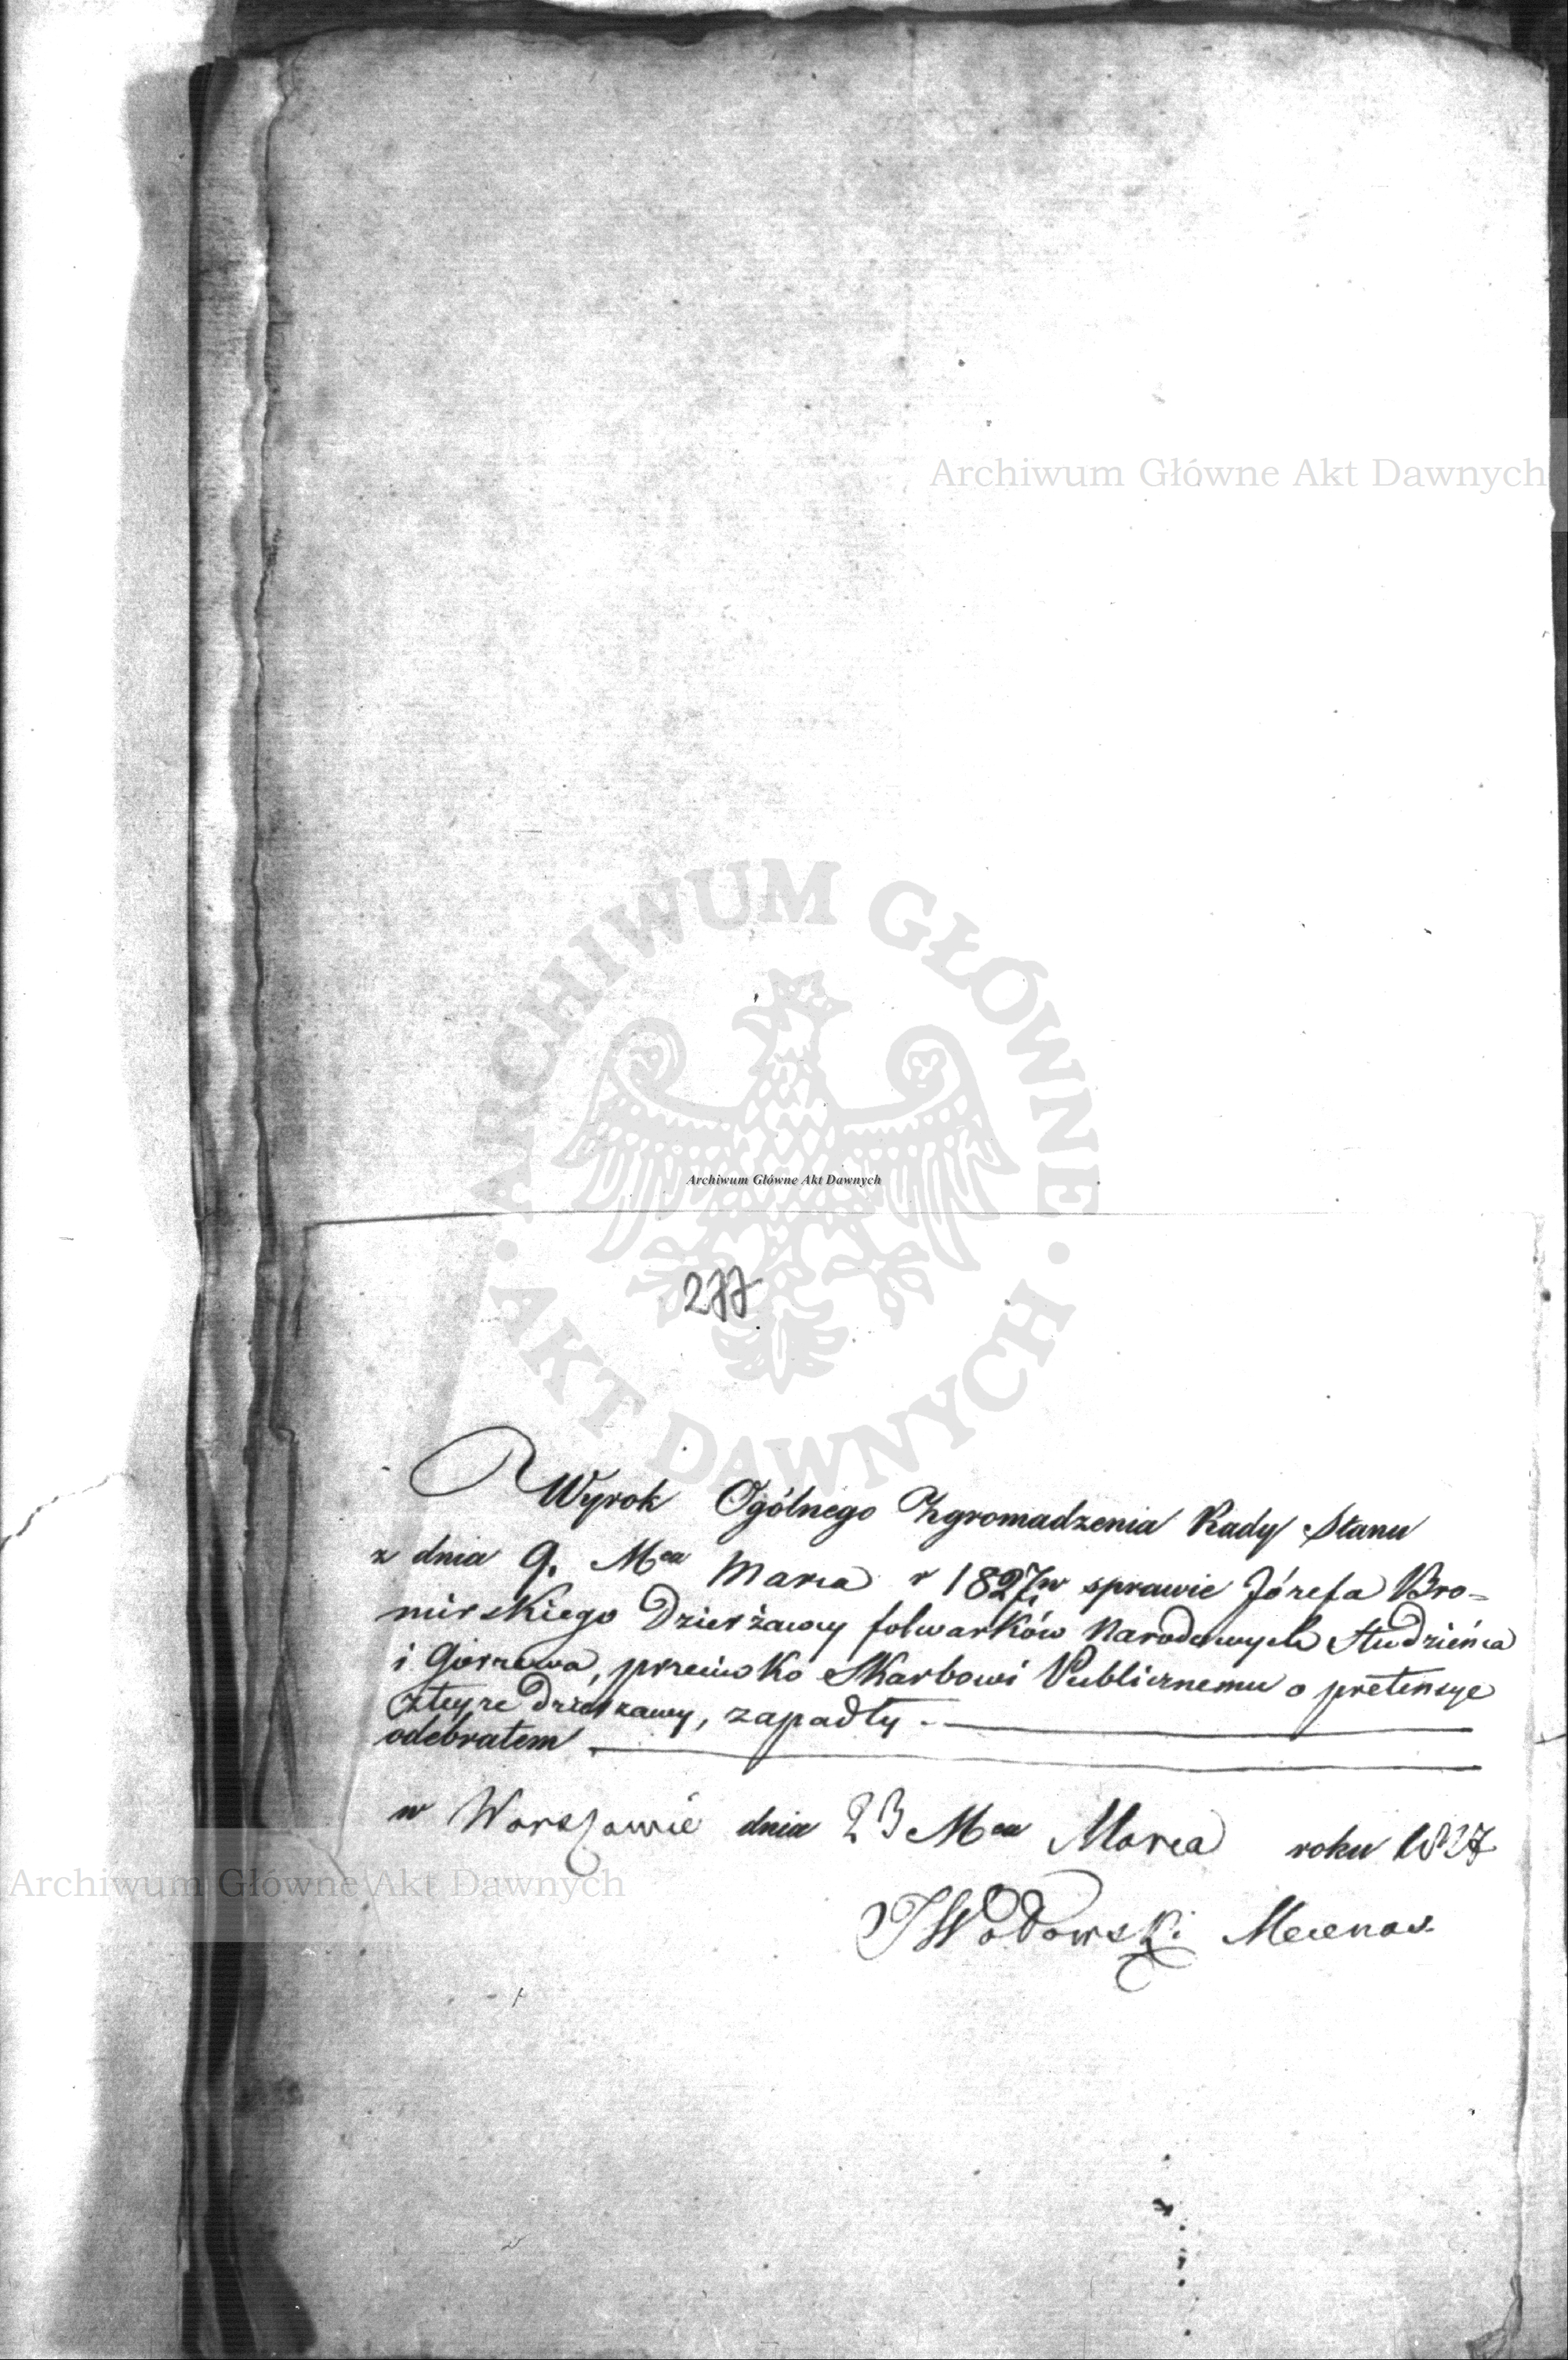 Archiwum Główne Akt Dawnych
ARCHIWUM GŁÓWNE · AKT DAWNYCH ·
Archiwum Główne Akt Dawnych
277
Wyrok Ogólnego Zgromadzenia Rady Stanu
z dnia 9. Mca Marca r 1827 w sprawie Józefa Bro-
mirskiego Dzierżawcy folwarków Narodowych Studzieńca
i Gorzewa, przeciwko Skarbowi Publicznemu o pretensye
z teyże Dzierżawy, zapadły.
odebrałem
w Warszawie dnia 23 Mca Marca roku 1827
Wodowski Mecenas.
Archiwum Główne Akt Dawnych